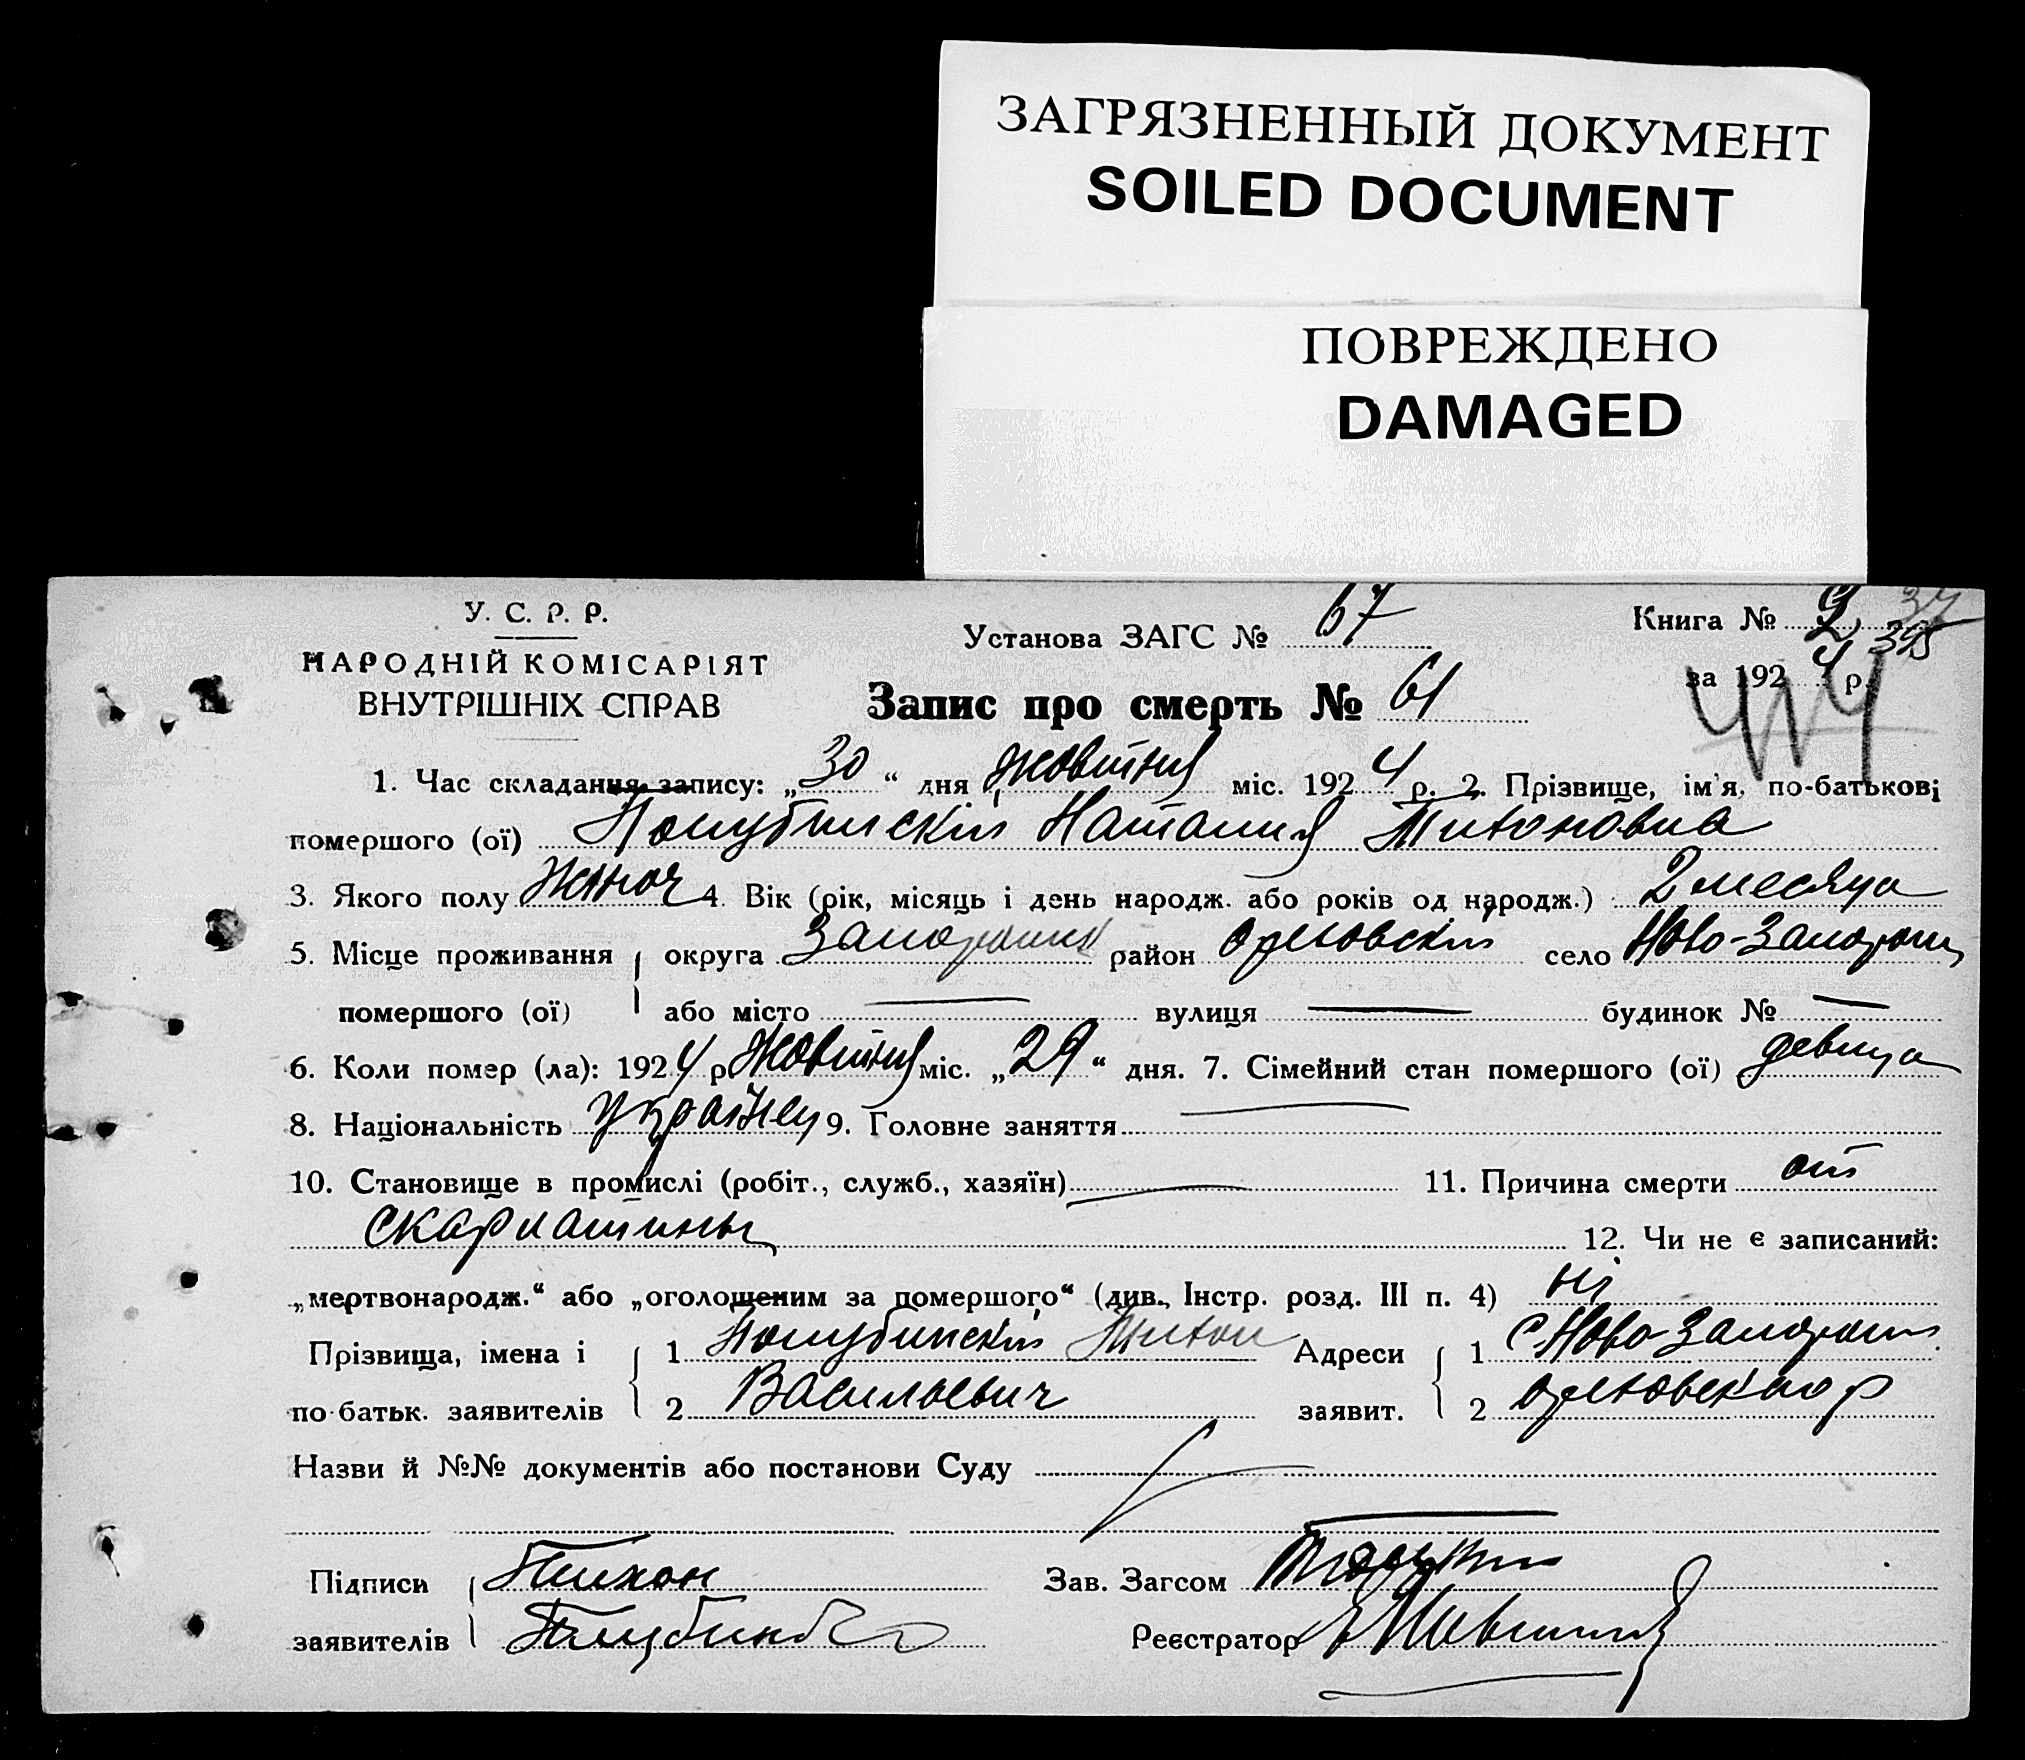 ЗАГРЯЗНЕННЫЙ ДОКУМЕНТ
SOILED DOCUMENT
ПОВРЕЖДЕНО
DAMAGED
У. С. Р. Р.
НАРОДНІЙ КОМІСАРІЯТ
ВНУТРІШНІХ СПРАВ
Установа ЗАГС № 67
Книга № 2
37
395
за 1924 р.
414
Запис про смерть № 61
1. Час складання запису: „30“ дня жовтня міс. 1924 р. 2. Прізвище, ім'я, по-батькові
помершого (ої) Полубинскій Наталия Тихоновна
3. Якого полу жіноч 4. Вік (рік, місяць і день народж. або років од народж.) 2 месяца
5. Місце проживання округа Запорошск район Орловскій село Ново-Запорош
помершого (ої) або місто — вулиця — будинок № —
6. Коли помер (ла): 1924 р жовтня міс. „29“ дня. 7. Сімейний стан помершого (ої) девица
8. Національність Україн 9. Головне заняття —
10. Становище в промислі (робіт., служб., хазяїн) — 11. Причина смерти от
скарлатины 12. Чи не є записаний:
„мертвонародж.“ або „оголошеним за помершого“ (див., Інстр. розд. III п. 4) ні
Прізвища, імена і 1 Полубинскій Тихон Адреси 1 с Ново-Запорош
по-батьк. заявителів 2 Васильевич заявит. 2 Орловскаго р
Назви й №№ документів або постанови Суду
Підписи Тихон Зав. Загсом
заявителів Реєстратор